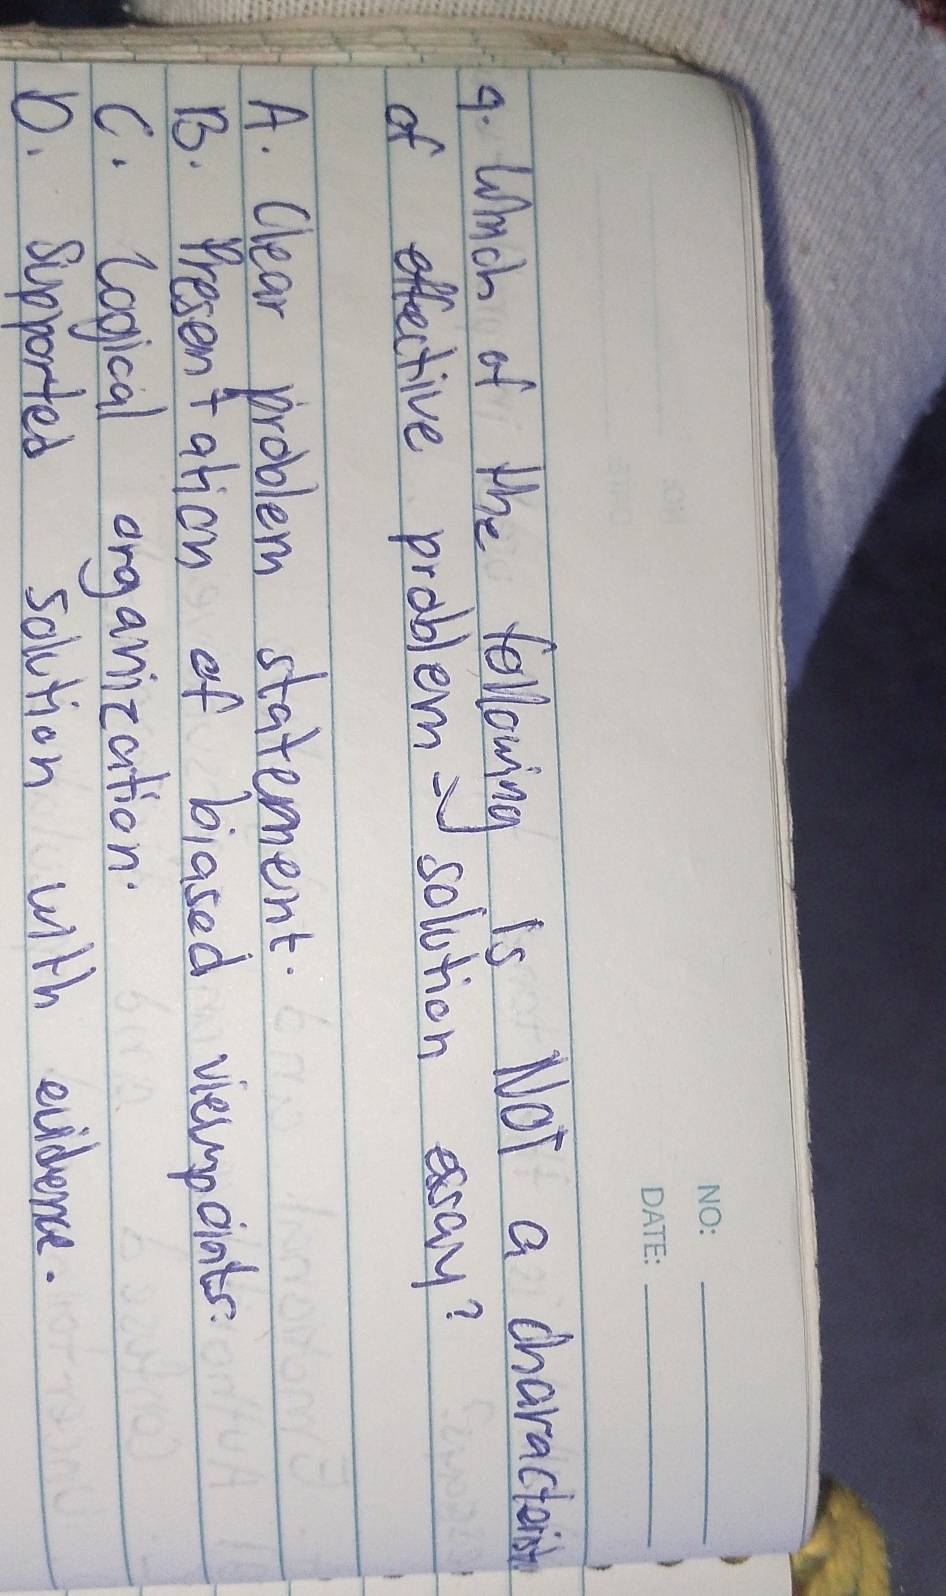 NO:
DATE:
9. Which of the following is NOT a characterist
of effective problem → solution essay?
A. Clear problem statement.
B. Presentation of biased viewpoints.
C. Logical organization.
D. Supported solution with evidence.